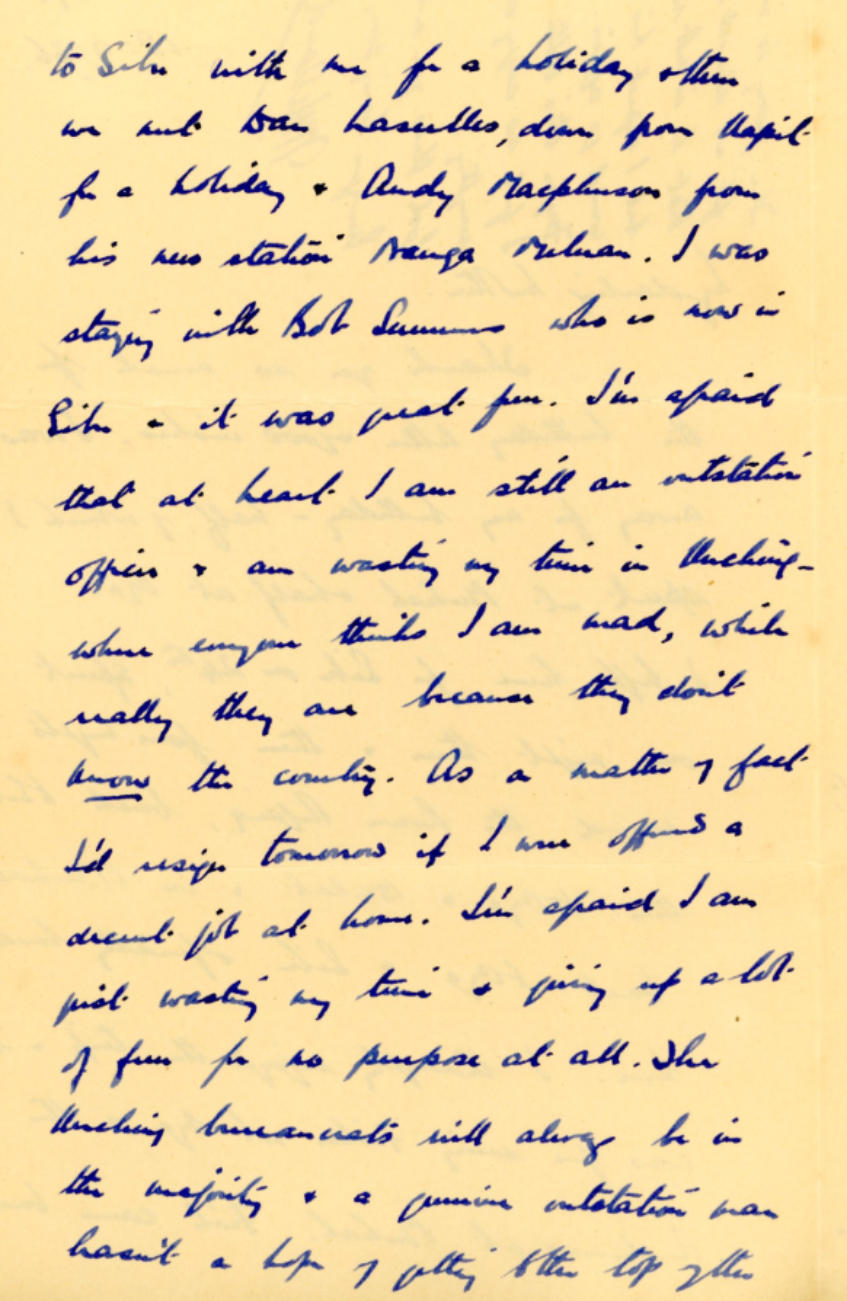 to Sibu with me for a holiday & then
we met Dan Lascelles, down from Kapit
for a holiday & Andy Macpherson from
his new station Nanga Meluan. I was
staying with Bob Simmons who is now in
Sibu & it was great fun. I'm afraid
that at heart I am still an outstation
officer & am wasting my time in Kuching -
where everyone thinks I am mad, while
really they are because they don't
know the country. As a matter of fact
I'd resign tomorrow if I were offered a
decent job at home. I'm afraid I am
just wasting my time & giving up a lot
of fun for no purpose at all. The
Kuching bureaucrats will always be in
the majority & a genuine outstation man
hasn't a hope of getting to the top of the